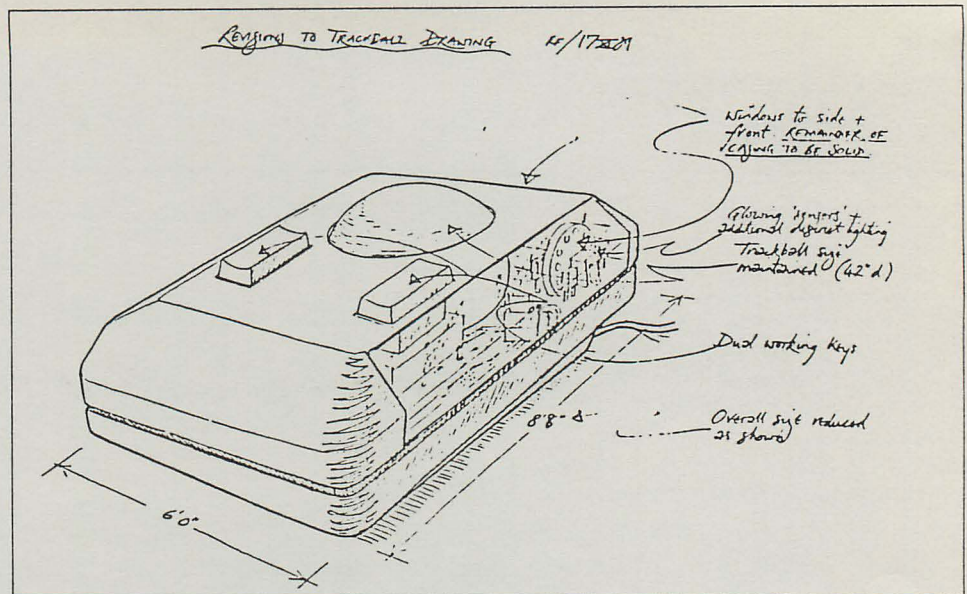 REVISIONS TO TRACKBALL DRAWING
Windows to side +
front. REMAINDER OF
CASING TO BE SOLID.
Glowing 'sensors' +
additional discreet lighting
Trackball size
maintained (42" d)
Dual working keys
Overall size reduced
as shown
8'8"
6'0"